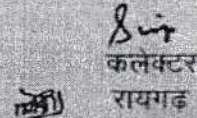 कलेक्टर
रायगढ़